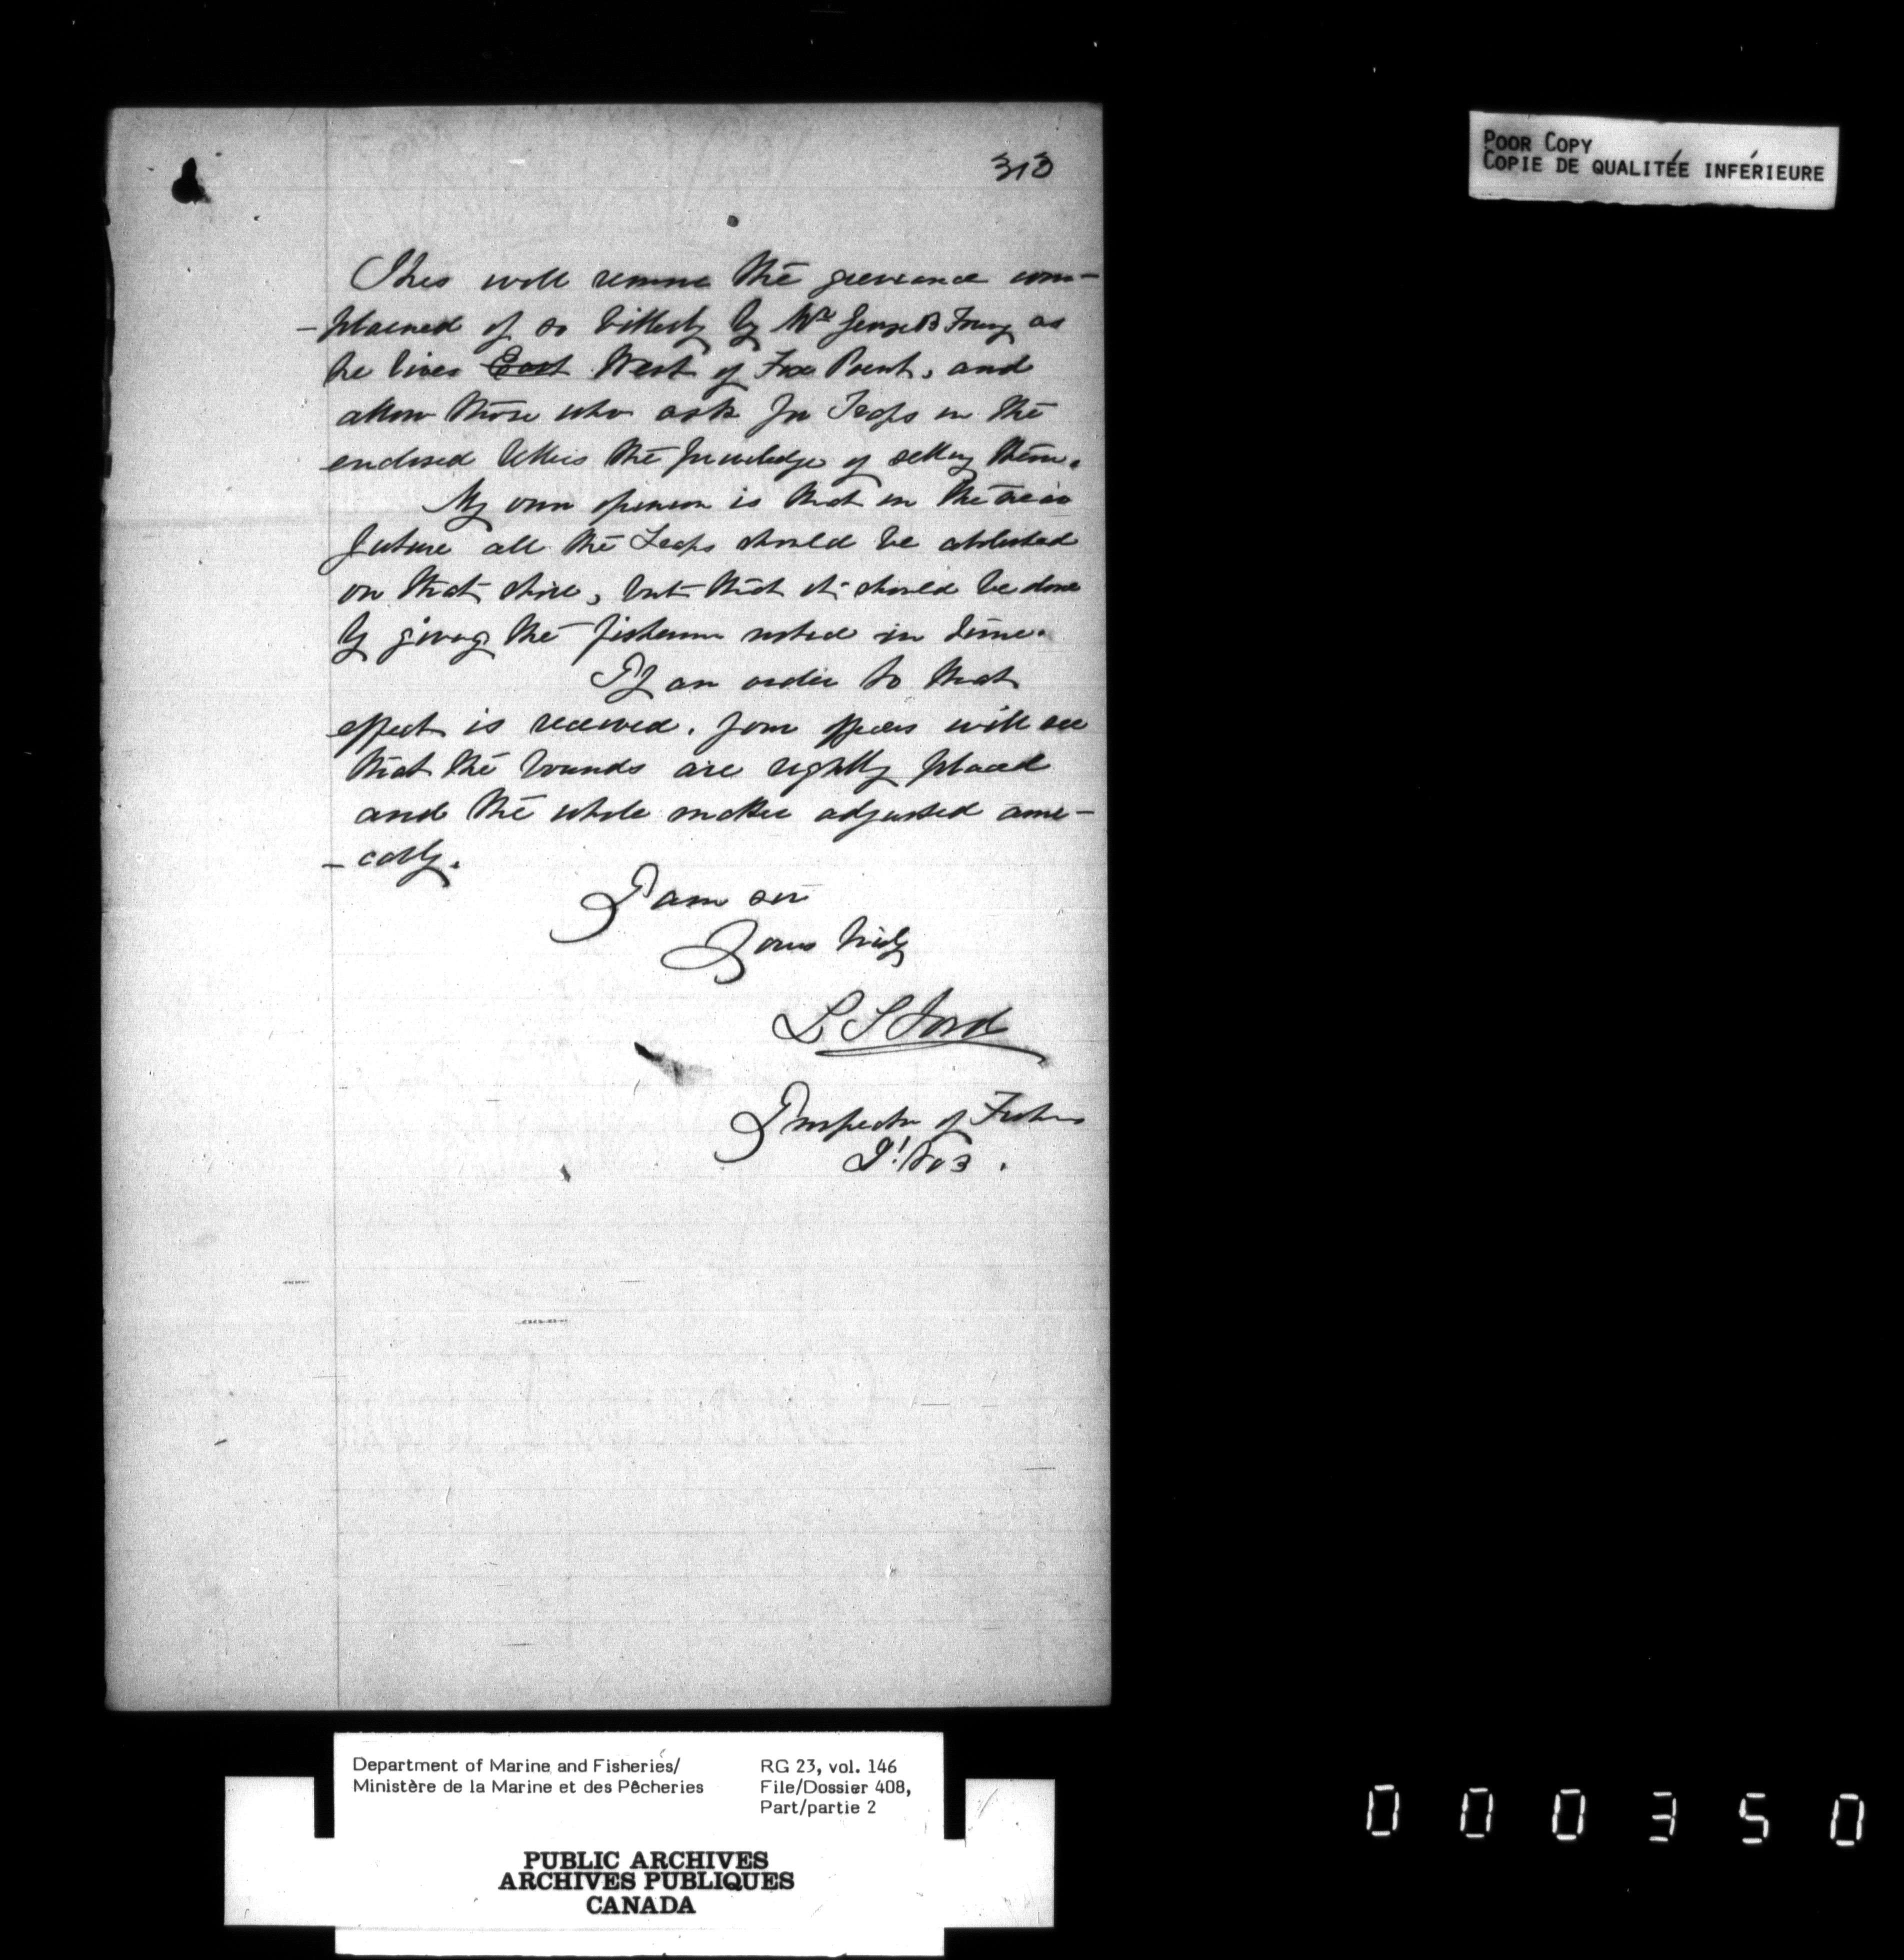 313
POOR COPY
COPIE DE QUALITÉE INFÉRIEURE
This will remove the grievance com-
-plained of so bitterly by Mr George B Young as
he lives East West of Fox Point, and
allow those who ask for Traps in the
enclosed letters the priviledge of setting them.
My own opinion is that in the near
future all the Traps should be abolished
on that shore, but that it should be done
by giving the fishermen notice in time.
If an order to that
effect is received. your officers will see
that the bounds are rightly placed
and the whole matter adjusted ami-
-cably.
I am sir
Yours truly
L S Ford
Inspector of Fisheries
No 3.
Department of Marine and Fisheries/
Ministère de la Marine et des Pêcheries
RG 23, vol. 146
File/Dossier 408,
Part/partie 2
PUBLIC ARCHIVES
ARCHIVES PUBLIQUES
CANADA
000350